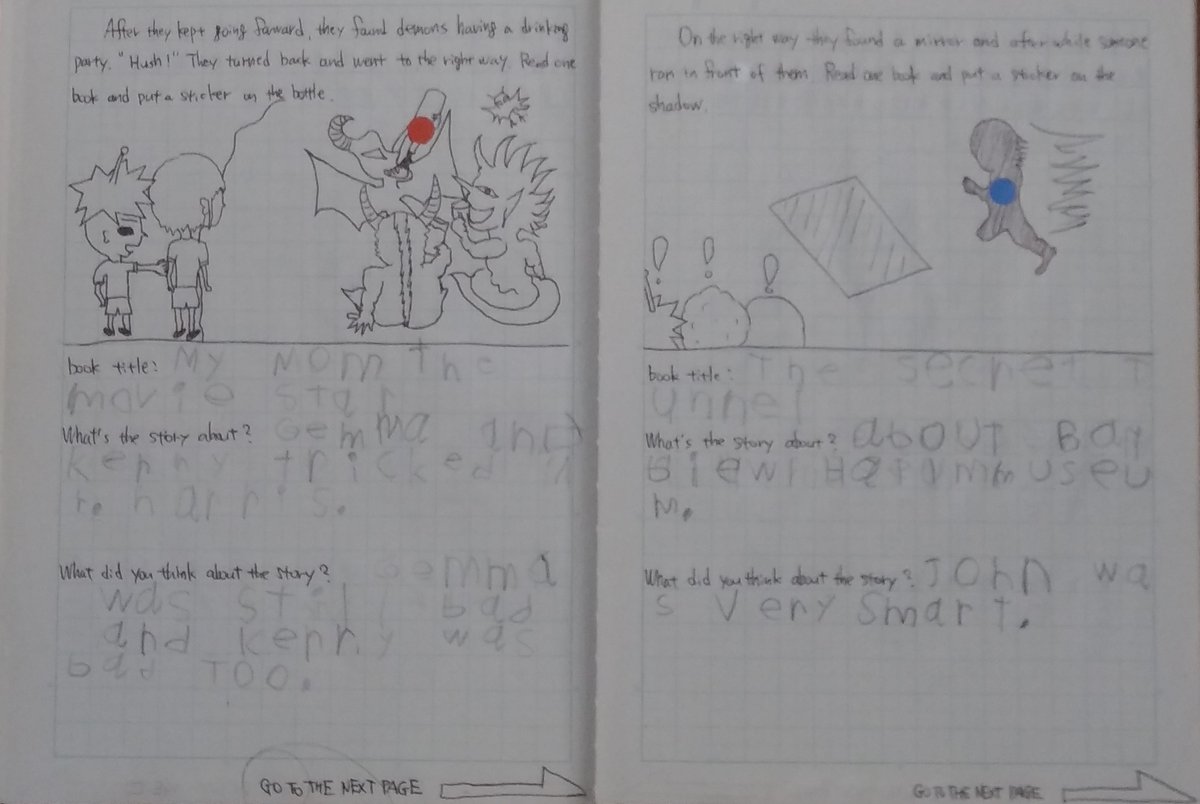 After they kept going forward, they found demons having a drinking
party. "Hush!" They turned back and went to the right way. Read one
book and put a sticker on the bottle.
book title: My Mom the
movie star
What's the story about? Gemma and
Kenny tricked M
r. harris.
What did you think about the story? Gemma
was still bad
and kenny was
bad Too.
GO TO THE NEXT PAGE
On the right way they found a mirror and after while someone
ran in front of them. Read one book and put a sticker on the
shadow.
book title: The secret T
unnel
What's the story about? about Bay
museu
m.
What did you think about the story? John wa
s very smart.
GO TO THE NEXT PAGE